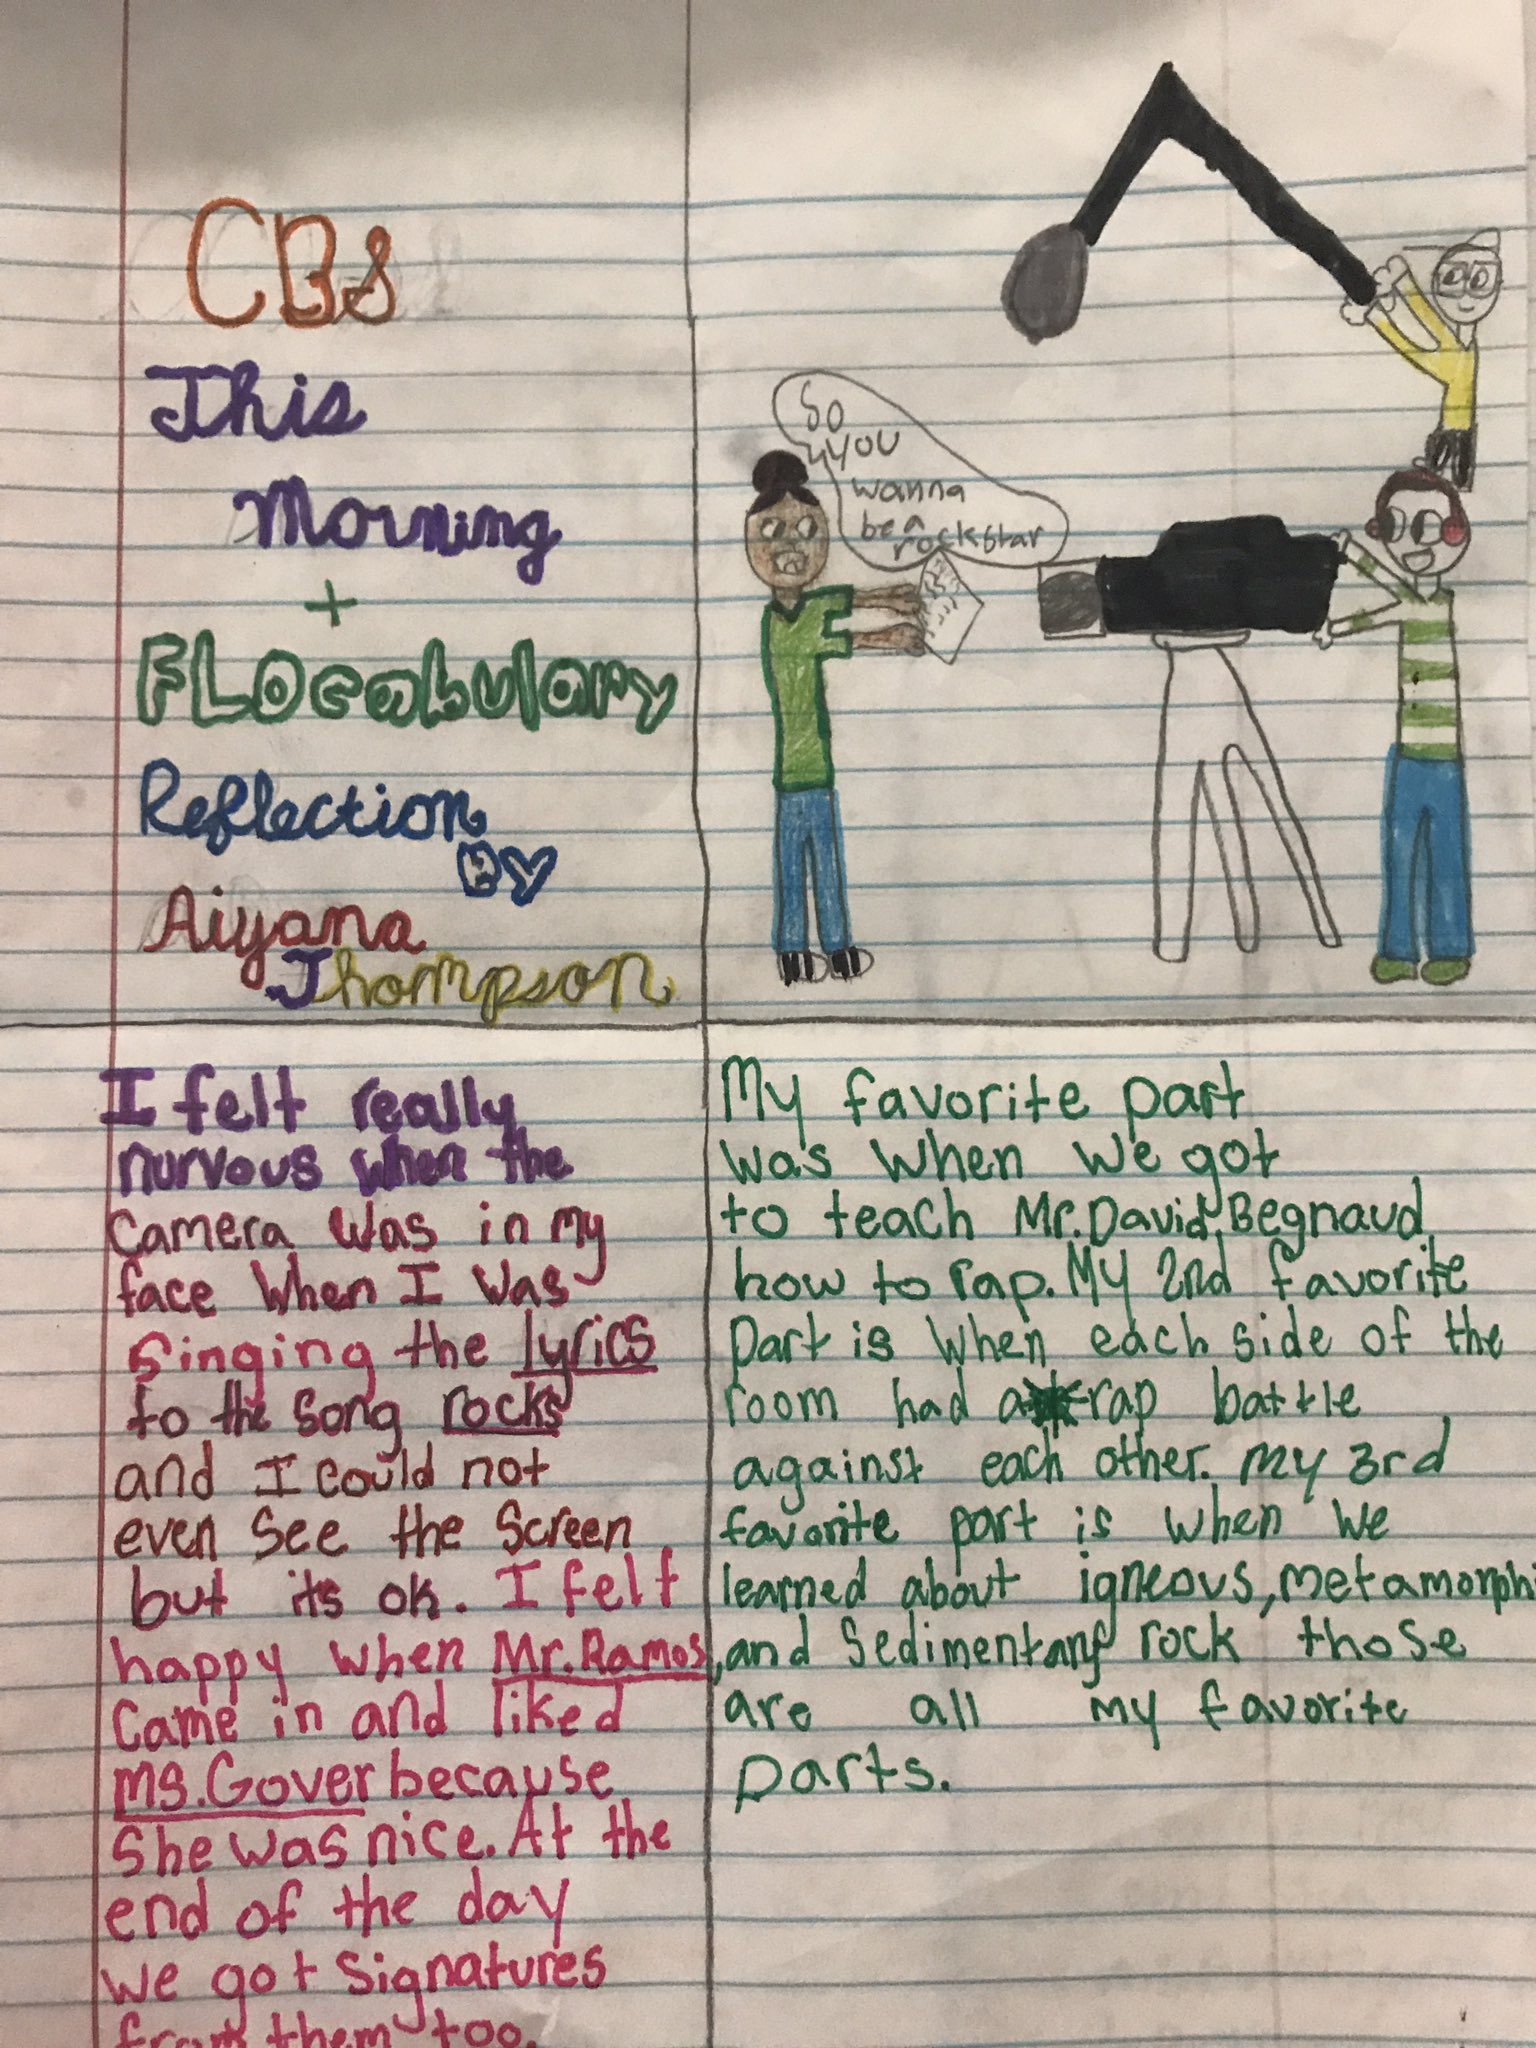 CBS
This
Morning
+
FLOcabulary
Reflection
BY
Aiyana
Thompson
So
you
wanna
be a
rockstar
I felt really
nurvous when the
camera was in my
face when I was
singing the lyrics
to the song rocks
and I could not
even see the screen
but its ok. I felt
happy when Mr. Ramos,
came in and liked
Ms. Gover because
she was nice. At the
end of the day
we got signatures
from them too.
My favorite part
was when we got
to teach Mr. David Begnaud
how to rap. My 2nd favorite
part is when each side of the
room had a rap battle
against each other. My 3rd
favorite part is when we
learned about igneous, metamorphi
and sedimentary rock those
are all my favorite
parts.